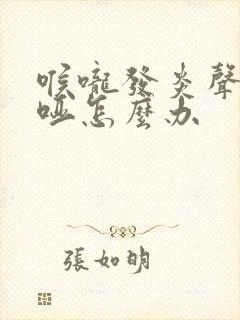 喉嚨發炎聲
啞怎麼办
張如明